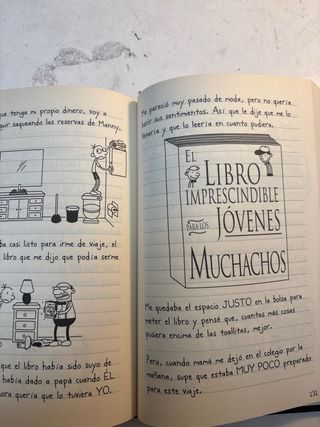 que tenga mi propio dinero, voy a
guir saqueando las reservas de Manny.
ba casi listo para irme de viaje, el
libro que me dijo que podía serme
que el libro había sido suyo de
había dado a papá cuando ÉL
hora quería que lo tuviera YO.
Me pareció muy pasado de moda, pero no quería
herir sus sentimientos. Así que le dije que me lo
llevaría y que lo leería en cuanto pudiera.
EL
LIBRO
IMPRESCINDIBLE
PARA LOS
JÓVENES
MUCHACHOS
Me quedaba el espacio JUSTO en la bolsa para
meter el libro y pensé que, cuantas más cosas
pusiera encima de las toallitas, mejor.
Pero, cuando mamá me dejó en el colegio por la
mañana, supe que estaba MUY POCO preparado
para este viaje.
131